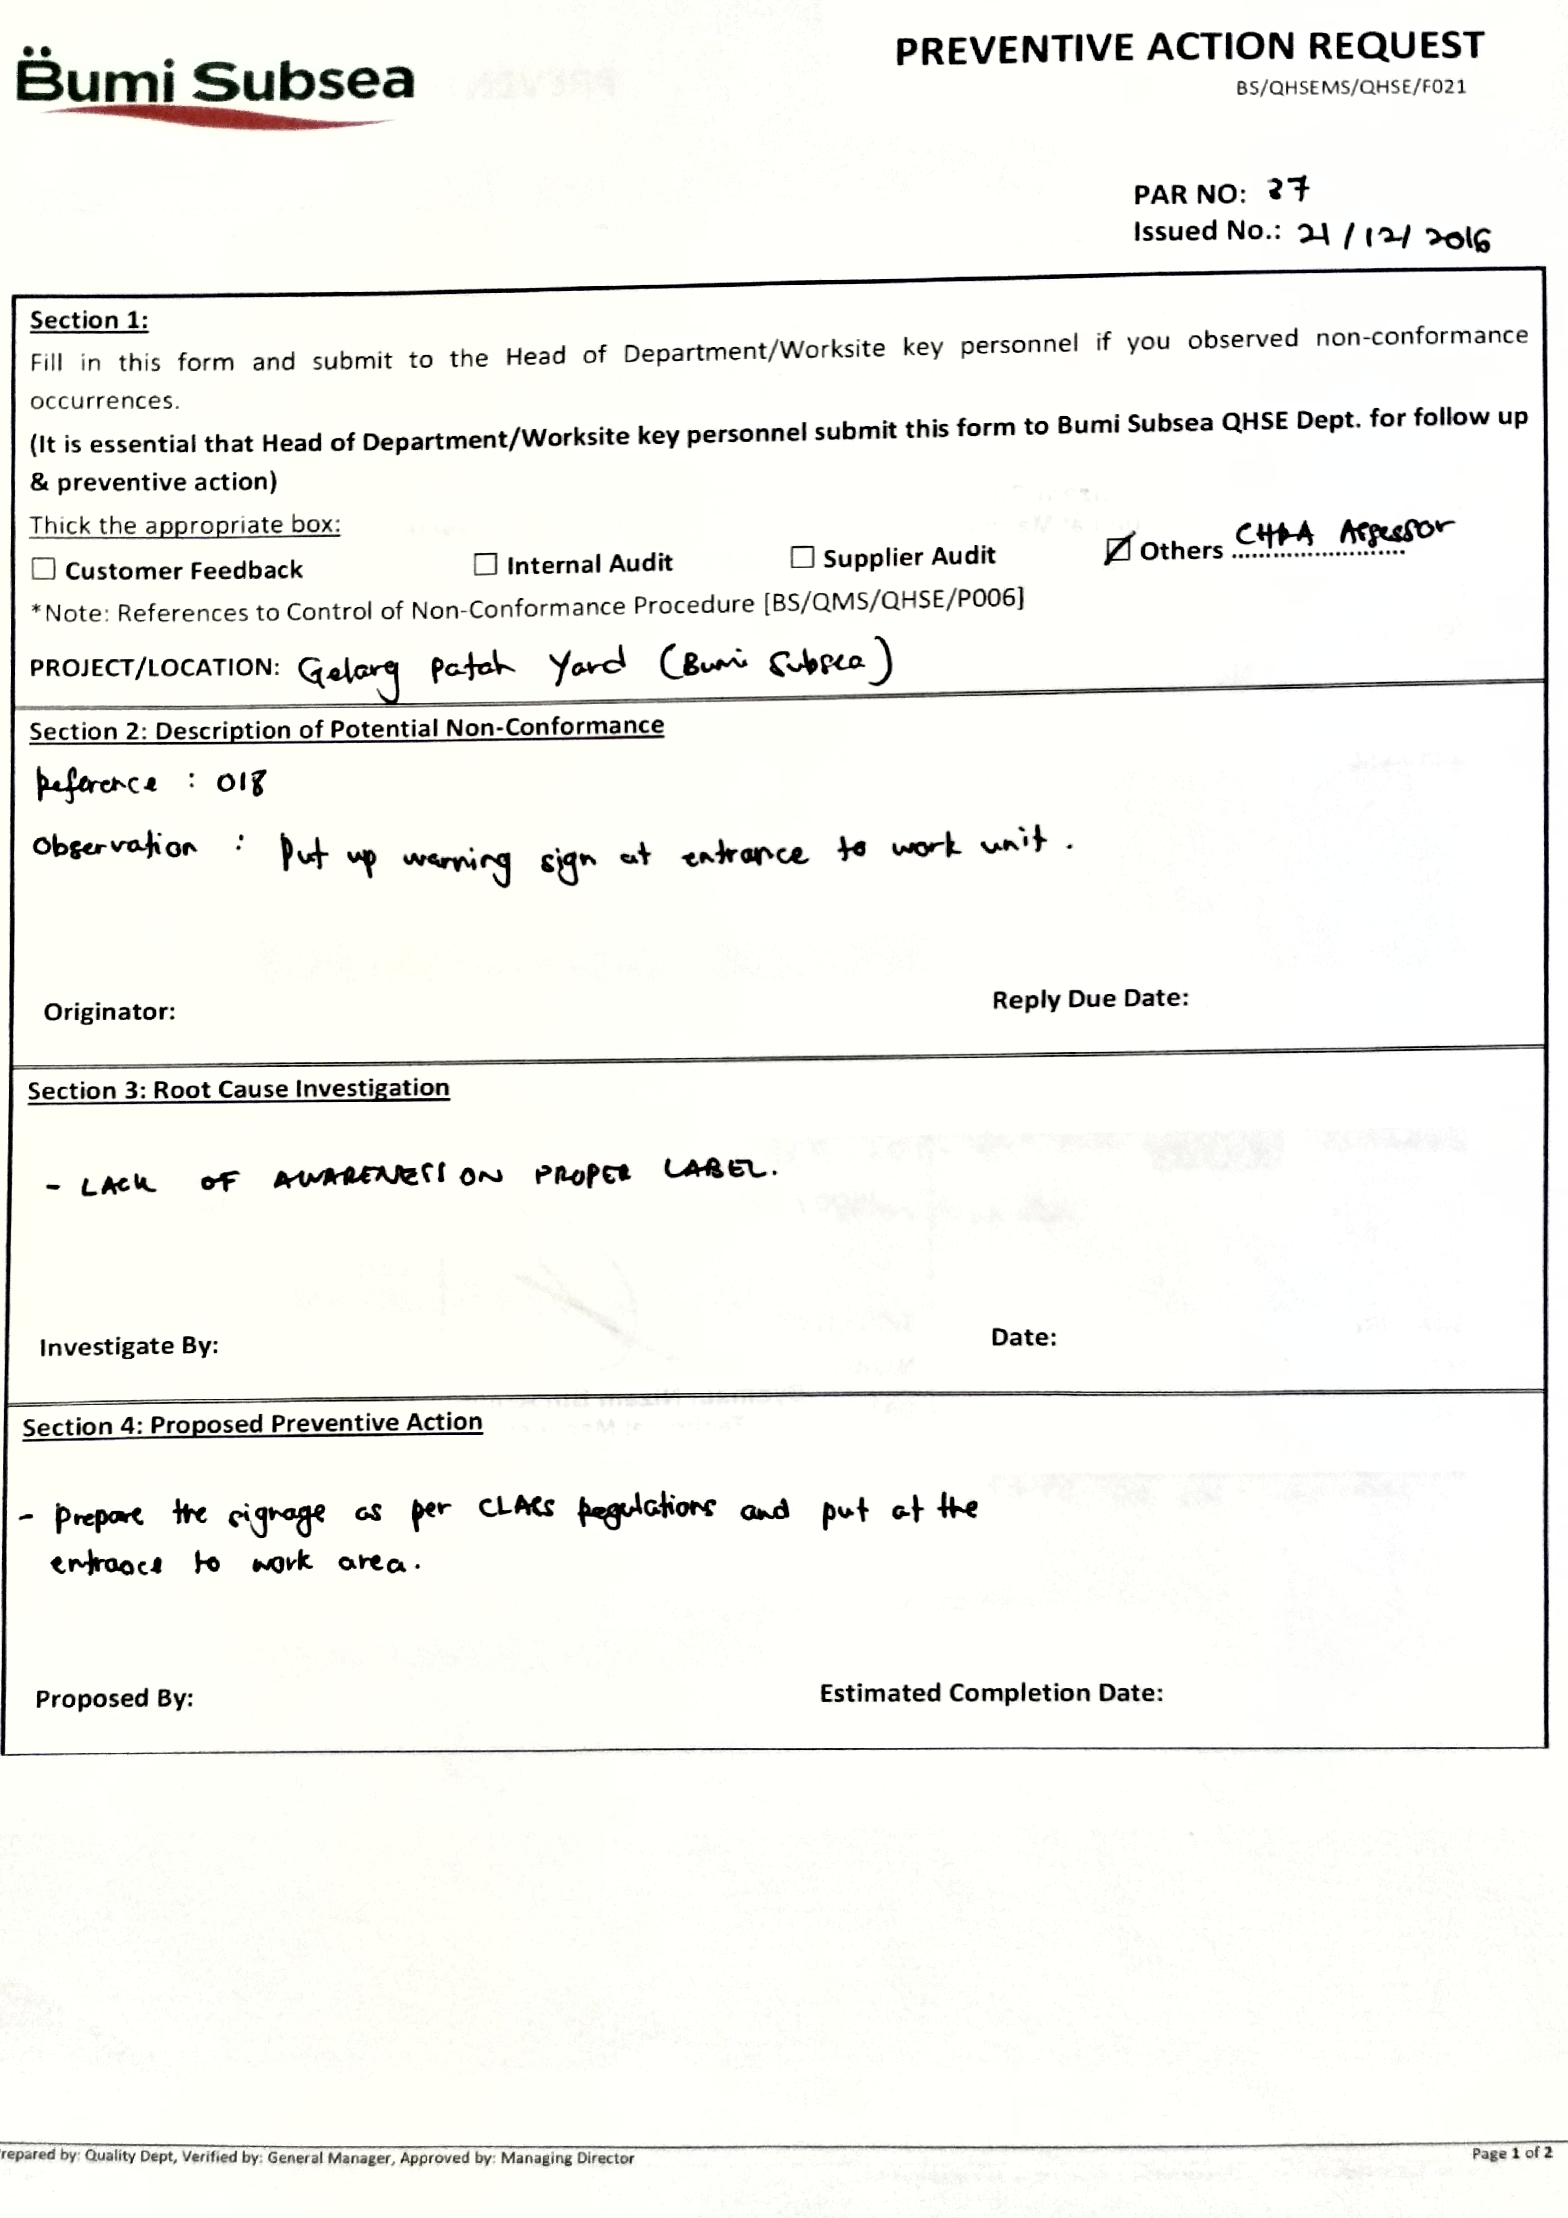 Bumi Subsea
PREVENTIVE ACTION REQUEST
BS/QHSEMS/QHSE/F021
PAR NO: 37
Issued No.: 21/12/2016
Section 1:
Fill in this form and submit to the Head of Department/Worksite key personnel if you observed non-conformance
occurrences.
(It is essential that Head of Department/Worksite key personnel submit this form to Bumi Subsea QHSE Dept. for follow up
& preventive action)
Thick the appropriate box:
Customer Feedback Internal Audit Supplier Audit Others CHRA Assessor
*Note: References to Control of Non-Conformance Procedure [BS/QMS/QHSE/P006]
PROJECT/LOCATION: Gelang Patah Yard (Bumi Subsea)
Section 2: Description of Potential Non-Conformance
Reference : 018
Observation : Put up warning sign at entrance to work unit.
Originator: Reply Due Date:
Section 3: Root Cause Investigation
- LACK OF AWARENESS ON PROPER LABEL.
Investigate By: Date:
Section 4: Proposed Preventive Action
- Prepare the signage as per CLASS Regulations and put at the
entrance to work area.
Proposed By: Estimated Completion Date:
repared by: Quality Dept, Verified by: General Manager, Approved by: Managing Director Page 1 of 2